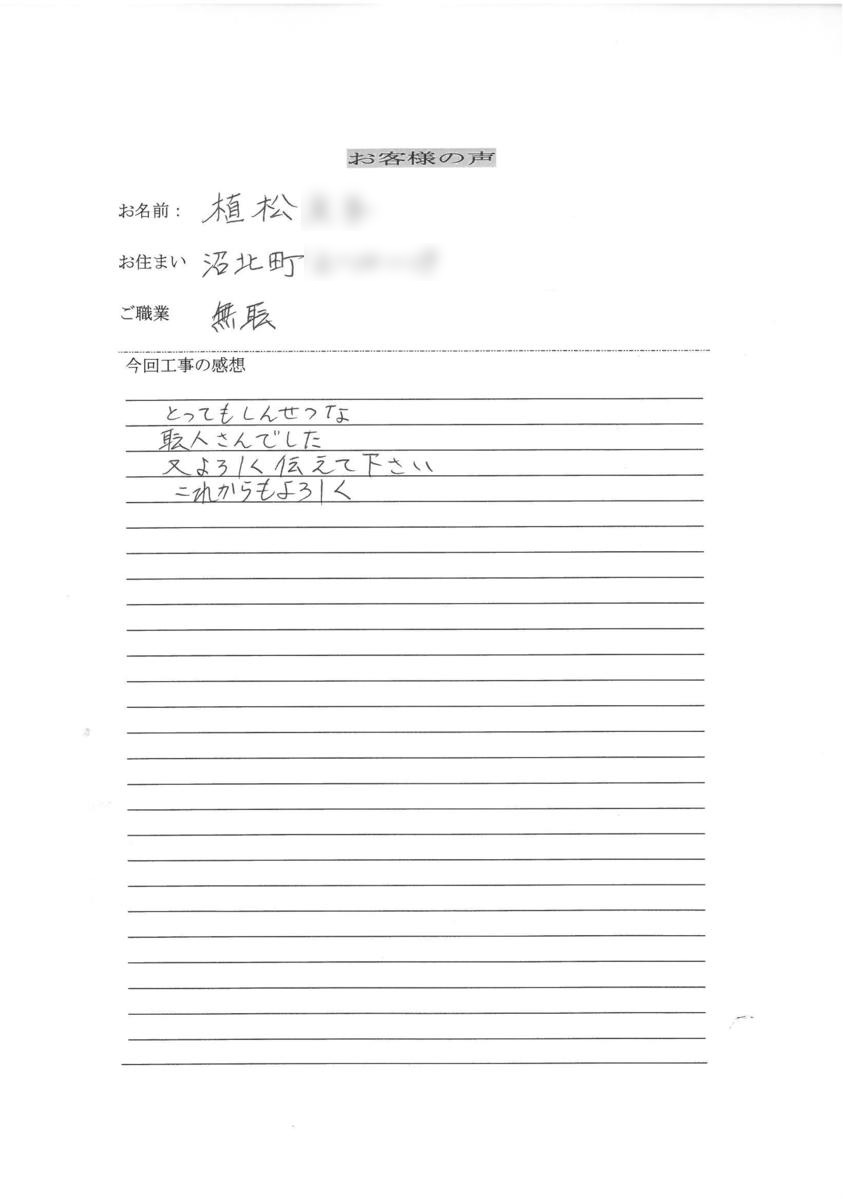 お客様の声
お名前： 植松
お住まい 沼北町
ご職業 無耺
今回工事の感想
とってもしんせつな
耺人さんでした
又よろしく伝えて下さい
これからもよろしく